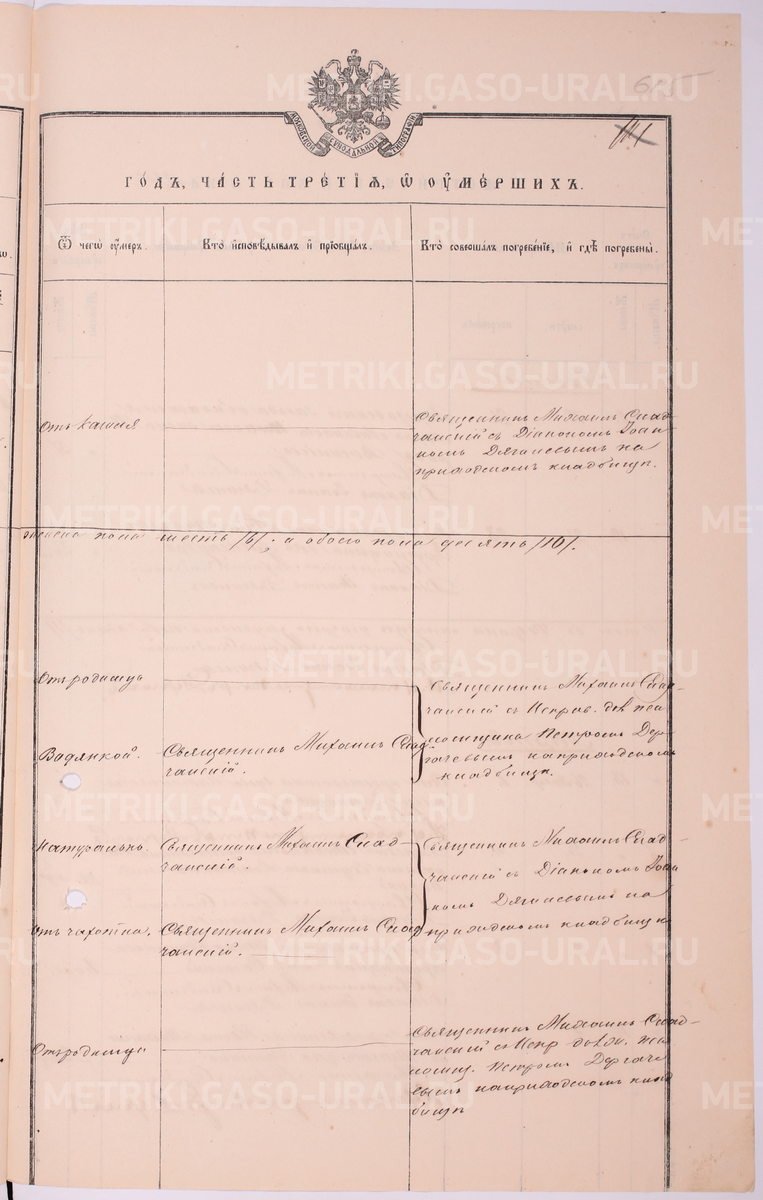 METRIKI.GASO-URAL.RU
635
141
МОСКОВСКОЙ СѴНОДАЛЬНОЙ ТИПОГРАФІИ
ГО́ДЪ, ЧА́СТЬ ТРЕ́ТІѦ, Ѿ ОУМЕ́РШИХЪ.
Ѿ чегѡ̀ ᲂу҆́меръ.
Кто̀ и҆сповѣ́дывалъ и҆ прїѡбща́лъ.
Кто̀ соверша́лъ погребе́нїе, и҆ гдѣ̀ погребены̀.
Отъ кашля
Священникъ Михаилъ Слад-
чанскій съ Діакономъ Іоан-
номъ Дягилевымъ на
приходскомъ кладбищѣ.
женска пола шесть /6/. а обоего пола десять /10/.
Отъ родимца
Священникъ Михаилъ Слад-
чанскій съ Исправ. долж. пса-
ломщика Петромъ Дер-
гачевымъ на приходскомъ
кладбищѣ.
Водянкой.
Священникъ Михаилъ Слад-
чанскій.
Натурально.
Священникъ Михаилъ Слад-
чанскій.
Священникъ Михаилъ Слад-
чанскій съ Діакономъ Іоан-
номъ Дягилевымъ на
приходскомъ кладбищѣ
отъ чахотки.
Священникъ Михаилъ Слад-
чанскій.
Отъ родимца
Священникъ Михаилъ Слад-
чанскій съ Испр. долж. пса-
ломщ. Петромъ Дергаче-
вымъ на приходскомъ клад-
бищѣ